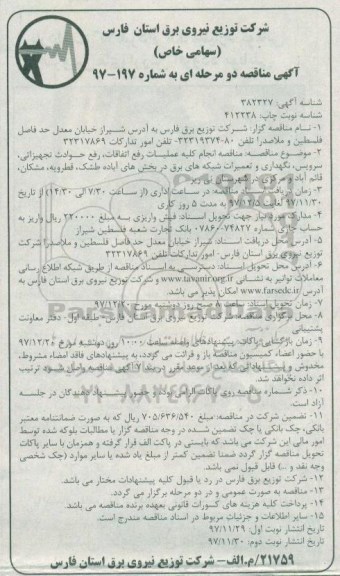 شرکت توزیع نیروی برق استان فارس
(سهامی خاص)
آگهی مناقصه دو مرحله ای به شماره ۱۹۷-۹۷
شناسه آگهی: ۳۸۲۳۲۷
شناسه نوبت چاپ: ۴۱۲۲۳۸
۱- نام مناقصه گزار: شرکت توزیع برق فارس به آدرس شیراز خیابان معدل حد فاصل
فلسطین و ملاصدرا تلفن ۸۰-۳۲۳۱۹۳۷۴ تلفن امور تدارکات ۳۲۳۱۷۸۶۹
۲- موضوع مناقصه: مناقصه انجام کلیه عملیات رفع اتفاقات، رفع حوادث تجهیزاتی،
سرویس، نگهداری و تعمیرات شبکه های برق در بخش های آباده طشک، قطرویه، مشکان،
قائم آباد و مرکزی در شهرستان نی ریز
۳- زمان دریافت اسناد مناقصه: در ساعات اداری (از ساعت ۷/۳۰ الی ۱۴/۳۰) از تاریخ
۹۷/۱۱/۳۰ لغایت ۹۷/۱۲/۵ به مدت ۵ روز کاری
۴- مدارک مورد نیاز جهت تحویل اسناد: فیش واریزی به مبلغ ۲۲۰۰۰۰ ریال واریز به
حساب جاری شماره ۰۷۸۶۰۰۷۴۸۲۷ بانک تجارت شعبه فلسطین شیراز
۵- آدرس محل دریافت اسناد: شیراز خیابان معدل حد فاصل فلسطین و ملاصدرا شرکت
توزیع نیروی برق استان فارس - امور تدارکات تلفن ۳۲۳۱۷۸۶۹
۶- آدرس محل تحویل اسناد: دسترسی به اسناد مناقصه از طریق شبکه اطلاع رسانی
معاملات توانیر به نشانی www.tavanir.org.ir و شرکت توزیع نیروی برق استان فارس به
آدرس www.farsedc.ir امکان پذیر می باشد.
۷- زمان تحویل اسناد: ساعت صبح روز دوشنبه مورخ
۸- محل برگزاری مناقصه: شرکت توزیع نیروی برق استان فارس- طبقه اول - دفتر معاونت
پشتیبانی
۹- زمان بازگشایی پاکات: پیشنهادهای واصله ساعت ۱۰:۰۰ روز دوشنبه مورخ ۹۷/۱۲/۲۰
با حضور اعضاء کمیسیون مناقصه باز و قرائت می گردد، به پیشنهادهای فاقد امضاء مشروط،
مخدوش و پیشنهاداتی که بعد از موعد مقرر در بند ۷ آگهی مناقصه واصل شود ترتیب
اثر داده نخواهد شد.
۱۰- ذکر شماره مناقصه روی پاکات الزامی بوده و حضور پیشنهاد دهندگان در جلسه
آزاد است.
۱۱- تضمین شرکت در مناقصه: مبلغ ۷۰۵/۶۳۶/۵۴۰ ریال که به صورت ضمانتنامه معتبر
بانکی، چک بانکی یا چک تضمین شده در وجه مناقصه گزار یا مطالبات بلوکه شده توسط
امور مالی این شرکت می باشد که بایستی در پاکت الف قرار گرفته و همزمان با سایر پاکات
تحویل مناقصه گزار گردد ضمنا تضمین کمتر از مبلغ یاد شده یا سایر موارد (چک شخصی
وجه نقد و ...) قابل قبول نمی باشد.
۱۲- شرکت توزیع برق فارس در رد یا قبول کلیه پیشنهادات مختار می باشد.
۱۳- مناقصه به صورت عمومی و در دو مرحله برگزار می گردد.
۱۴- پرداخت کلیه هزینه های کسورات قانونی بعهده برنده مناقصه می باشد.
۱۵- سایر اطلاعات و جزئیات مربوط در اسناد مناقصه مندرج است.
تاریخ انتشار نوبت اول: ۹۷/۱۱/۲۹
تاریخ انتشار نوبت دوم: ۹۷/۱۱/۳۰
۲۱۷۵۹/م.الف- شرکت توزیع نیروی برق استان فارس